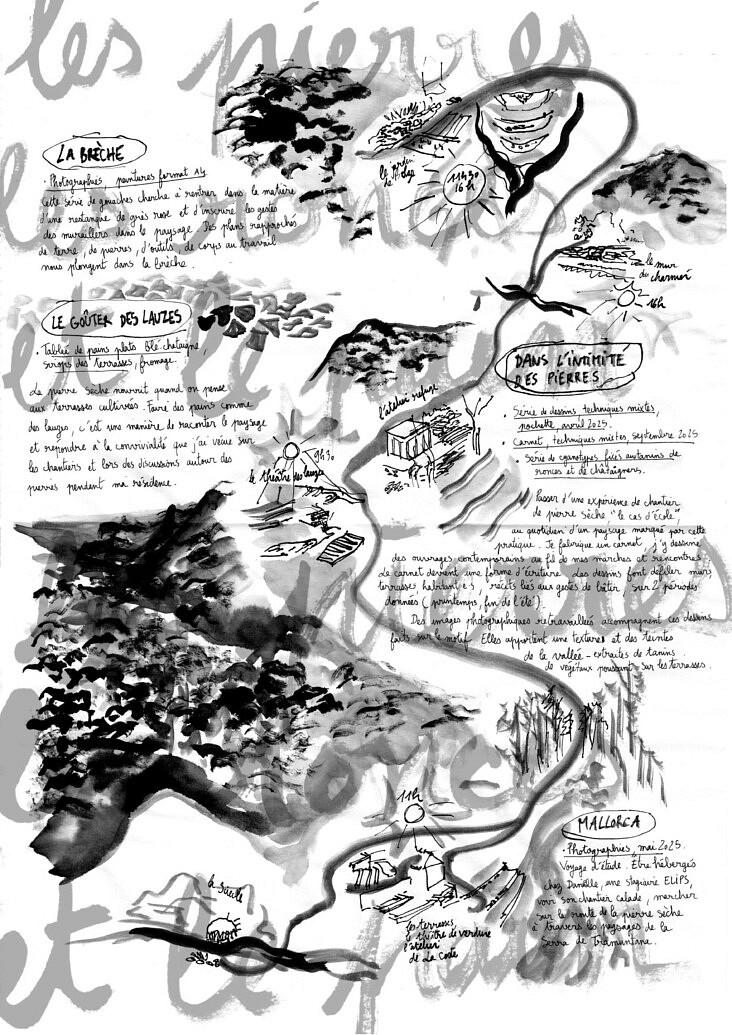 les pierres
les ronces
et le
LA BRÈCHE
• Photographies, peintures format A4
Cette série de gouaches cherche à rentrer dans la matière
d'une restanque de grès rose et d'inscrire les gestes
des murailleurs dans le paysage. Des plans rapprochés
de terre, de pierres, d'outils, de corps au travail
nous plongent dans la brèche.
le jardin
de
11h30
16h
le mur
du charmeur
16h
LE GOÛTER DES LAUZES
• Tablée de pains plats blé-chataîgne,
sirops des terrasses, fromage.
La pierre sèche nourrit quand on pense
aux terrasses cultivées. Faire des pains comme
des lauzes, c'est une manière de raconter le paysage
et répondre à la convivialité que j'ai vécue sur
les chantiers et lors des discussions autour des
pierres pendant ma résidence.
l'atelier refuge
9h30
le théâtre des lauzes
DANS L'INTIMITE
DES PIERRES
• Série de dessins techniques mixtes,
pochette, avril 2025.
• Carnet, techniques mixtes, septembre 2025
• Série de cyanotypes fixés aux tanins de
ronces et de châtaigners.
Passer d'une expérience de chantier
de pierre sèche "le cas d'école",
au quotidien d'un paysage marqué par cette
pratique. Je fabrique un carnet, j'y dessine
des ouvrages contemporains au fil de mes marches et rencontres.
Le carnet devient une forme d'écriture. Les dessins font défiler murs
terrasses, habitant·e·s, récits liés aux gestes de bâtir, sur 2 périodes
données (printemps, fin de l'été).
Des images photographiques retravaillées accompagnent ces dessins
faits sur le motif. Elles apportent une texture et des teintes
de la vallée - extraites de tanins
de végétaux poussant sur les terrasses.
les pierres
les ronces
et le
11h
MALLORCA
• Photographies, mai 2025.
Voyage d'étude. Être hébergés
chez Danielle, une stagiaire ELIPS,
voir son chantier calade, marcher
sur la route de la pierre sèche
à travers les paysages de la
Serra de Tramuntana.
les terrasses,
le théâtre de verdure
l'atelier
de La Coste